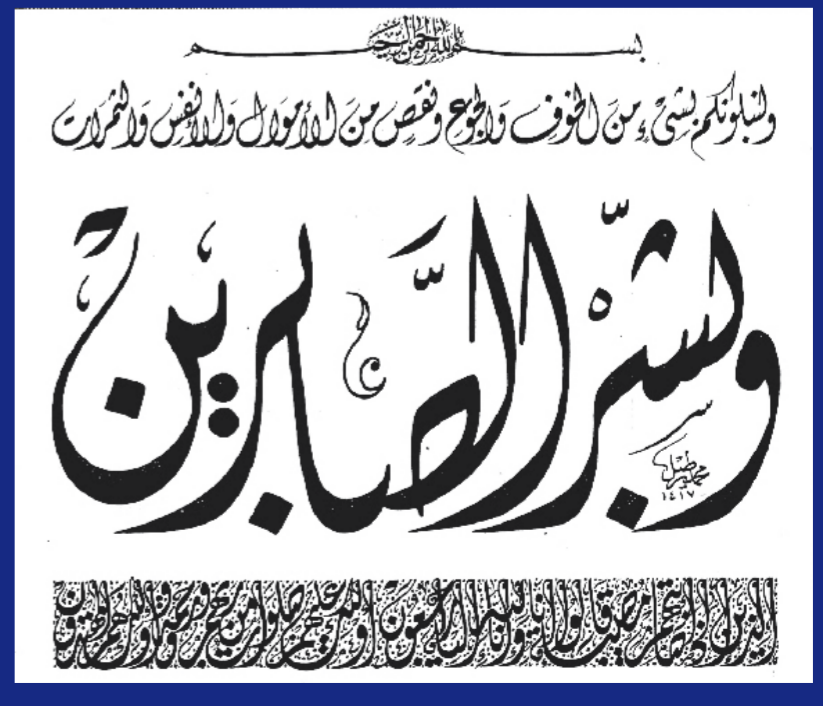 بسم الله الرحمن الرحيم
ولنبلونكم بشيء من الخوف والجوع ونقص من الأموال والأنفس والثمرات
وبشر الصابرين
١٤١٧
الذين إذا أصابتهم مصيبة قالوا إنا لله وإنا إليه راجعون أولئك عليهم صلوات من ربهم ورحمة وأولئك هم المهتدون